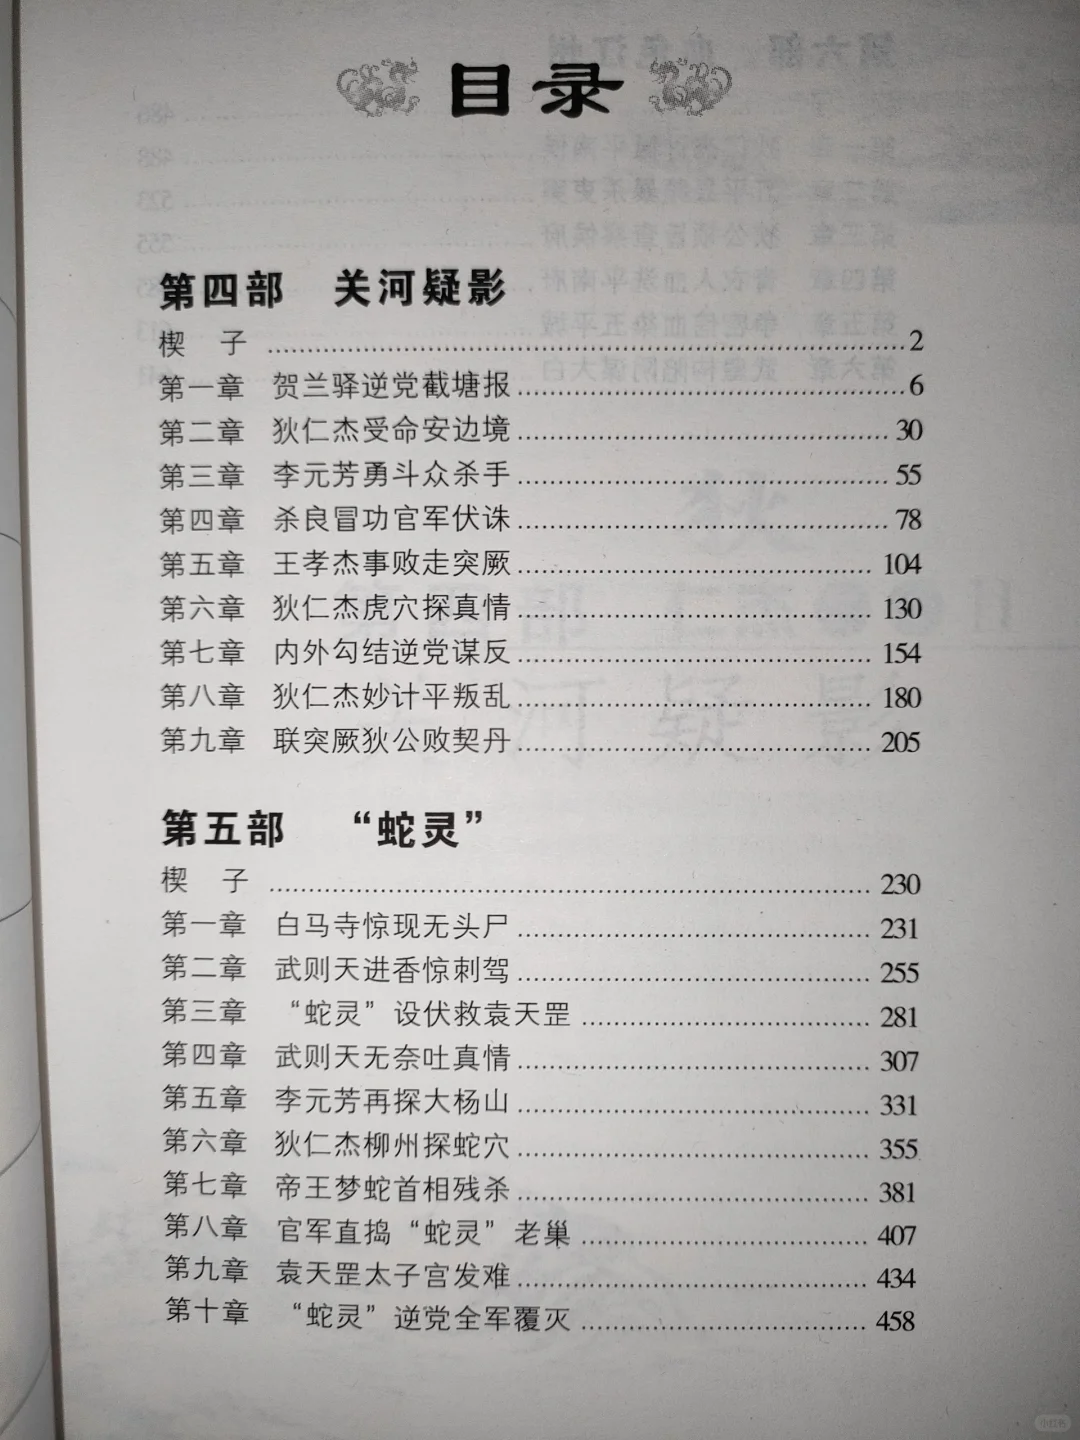 目录
第四部 关河疑影
楔 子 ........ 2
第一章 贺兰驿逆党截塘报 ........ 6
第二章 狄仁杰受命安边境 ........ 30
第三章 李元芳勇斗众杀手 ........ 55
第四章 杀良冒功官军伏诛 ........ 78
第五章 王孝杰事败走突厥 ........ 104
第六章 狄仁杰虎穴探真情 ........ 130
第七章 内外勾结逆党谋反 ........ 154
第八章 狄仁杰妙计平叛乱 ........ 180
第九章 联突厥狄公败契丹 ........ 205
第五部 “蛇灵”
楔 子 ........ 230
第一章 白马寺惊现无头尸 ........ 231
第二章 武则天进香惊刺驾 ........ 255
第三章 “蛇灵”设伏救袁天罡 ........ 281
第四章 武则天无奈吐真情 ........ 307
第五章 李元芳再探大杨山 ........ 331
第六章 狄仁杰柳州探蛇穴 ........ 355
第七章 帝王梦蛇首相残杀 ........ 381
第八章 官军直捣“蛇灵”老巢 ........ 407
第九章 袁天罡太子宫发难 ........ 434
第十章 “蛇灵”逆党全军覆灭 ........ 458
小红书